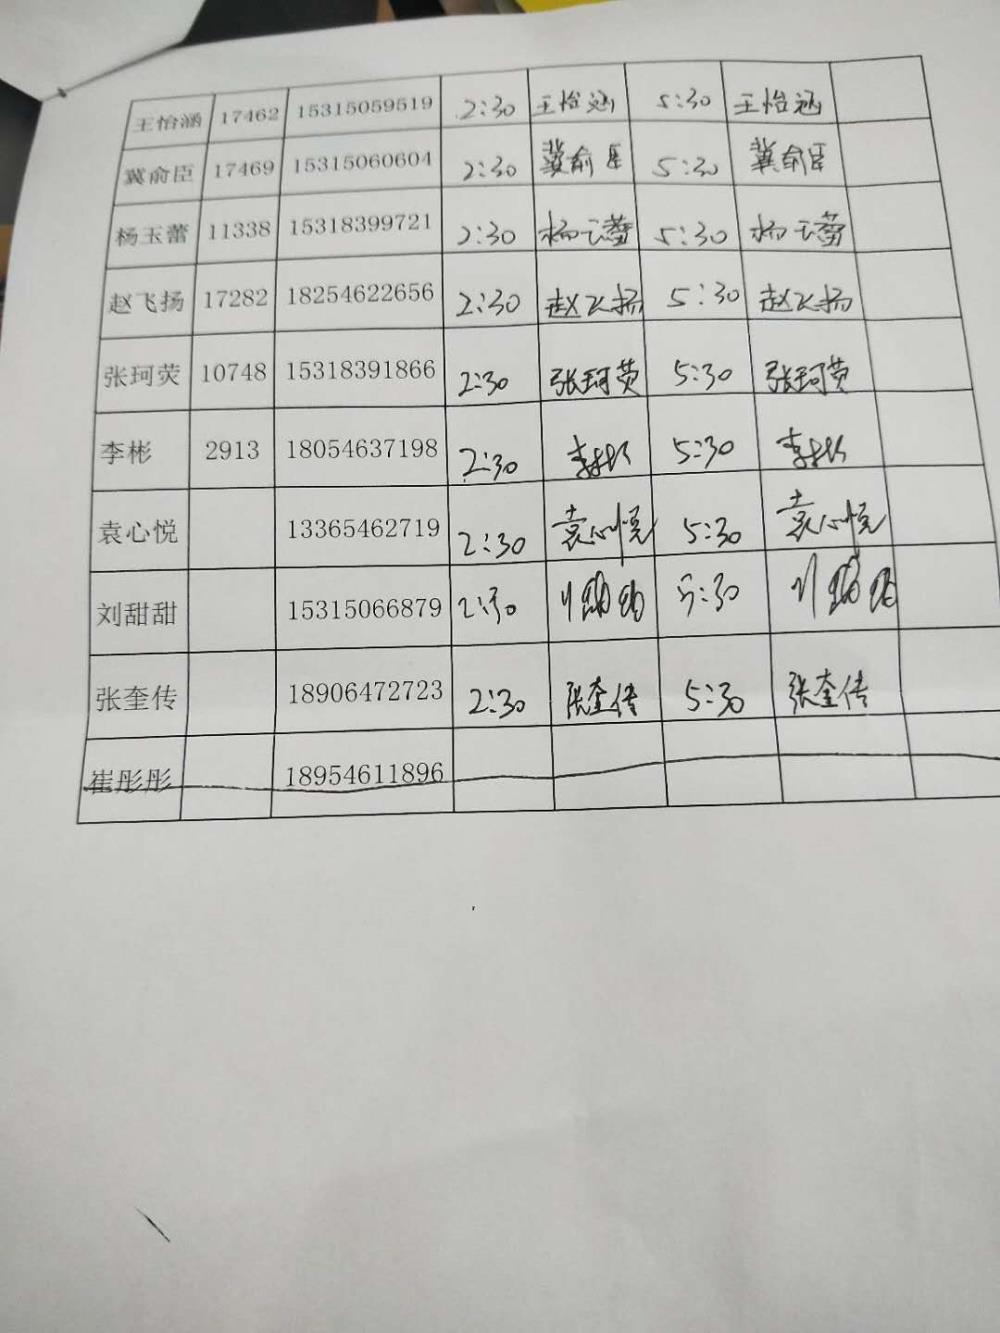 王怡涵 17462 15315059519 2:30 王怡涵 5:30 王怡涵
冀俞臣 17469 15315060604 2:30 冀俞臣 5:30 冀俞臣
杨玉蕾 11338 15318399721 2:30 杨玉蕾 5:30 杨玉蕾
赵飞扬 17282 18254622656 2:30 赵飞扬 5:30 赵飞扬
张珂荧 10748 15318391866 2:30 张珂荧 5:30 张珂荧
李彬 2913 18054637198 2:30 李彬 5:30 李彬
袁心悦 13365462719 2:30 袁心悦 5:30 袁心悦
刘甜甜 15315066879 2:30 刘甜甜 5:30 刘甜甜
张奎传 18906472723 2:30 张奎传 5:30 张奎传
崔彤彤 18954611896